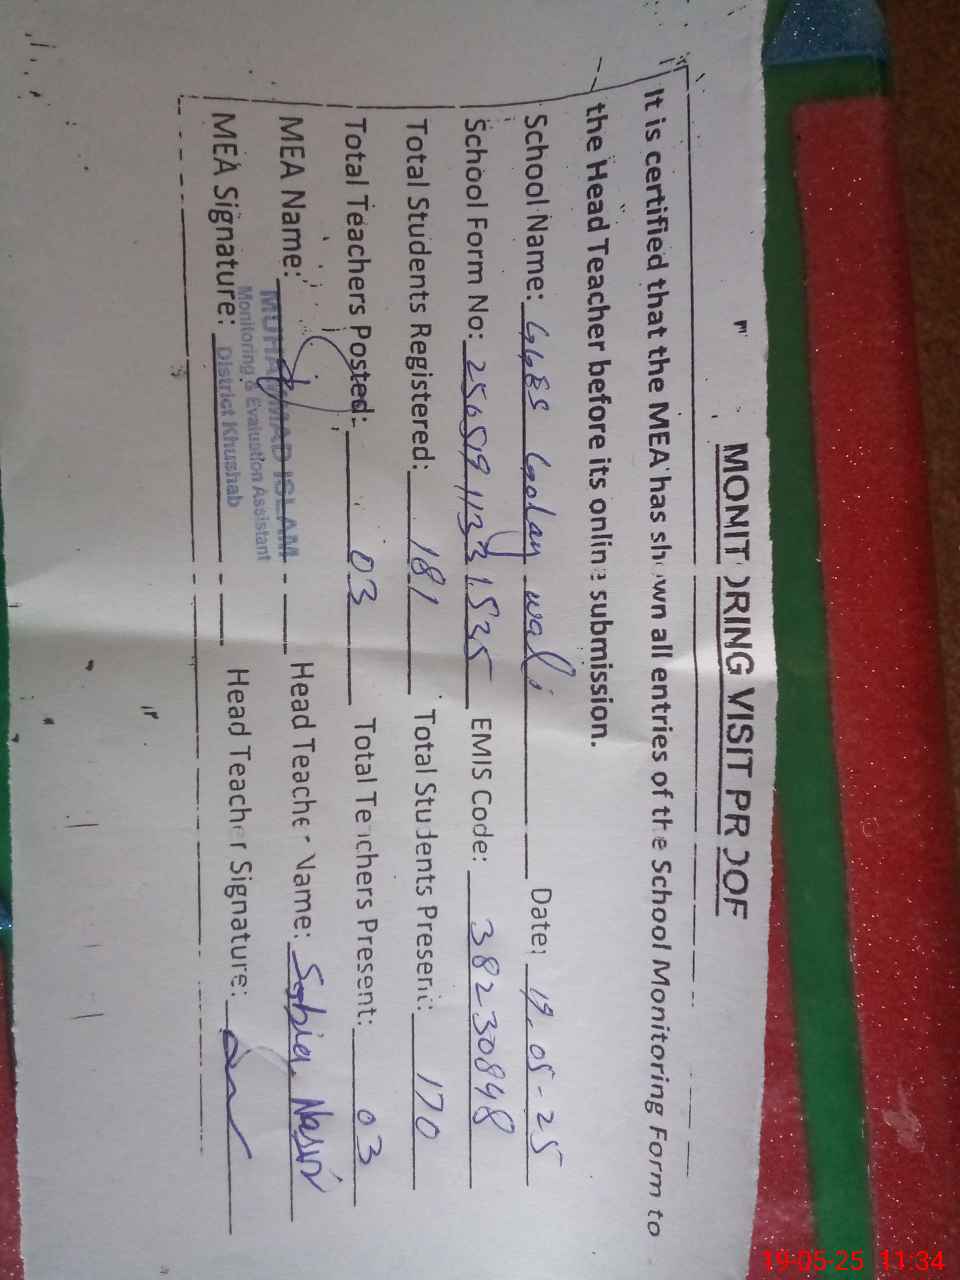 MONITORING VISIT PROOF
It is certified that the MEA has shown all entries of the School Monitoring Form to
the Head Teacher before its online submission.
School Name: GGES Golay wali Date: 19-05-25
School Form No: EMIS Code: 38230848
Total Students Registered: 181 Total Students Present: 170
Total Teachers Posted: 03 Total Teachers Present: 03
MEA Name: MUHAMMAD ISLAM Head Teacher Name: Sobia Nasir
Monitoring & Evaluation Assistant
MEA Signature: District Khushab Head Teacher Signature:
19-05-25 11:34